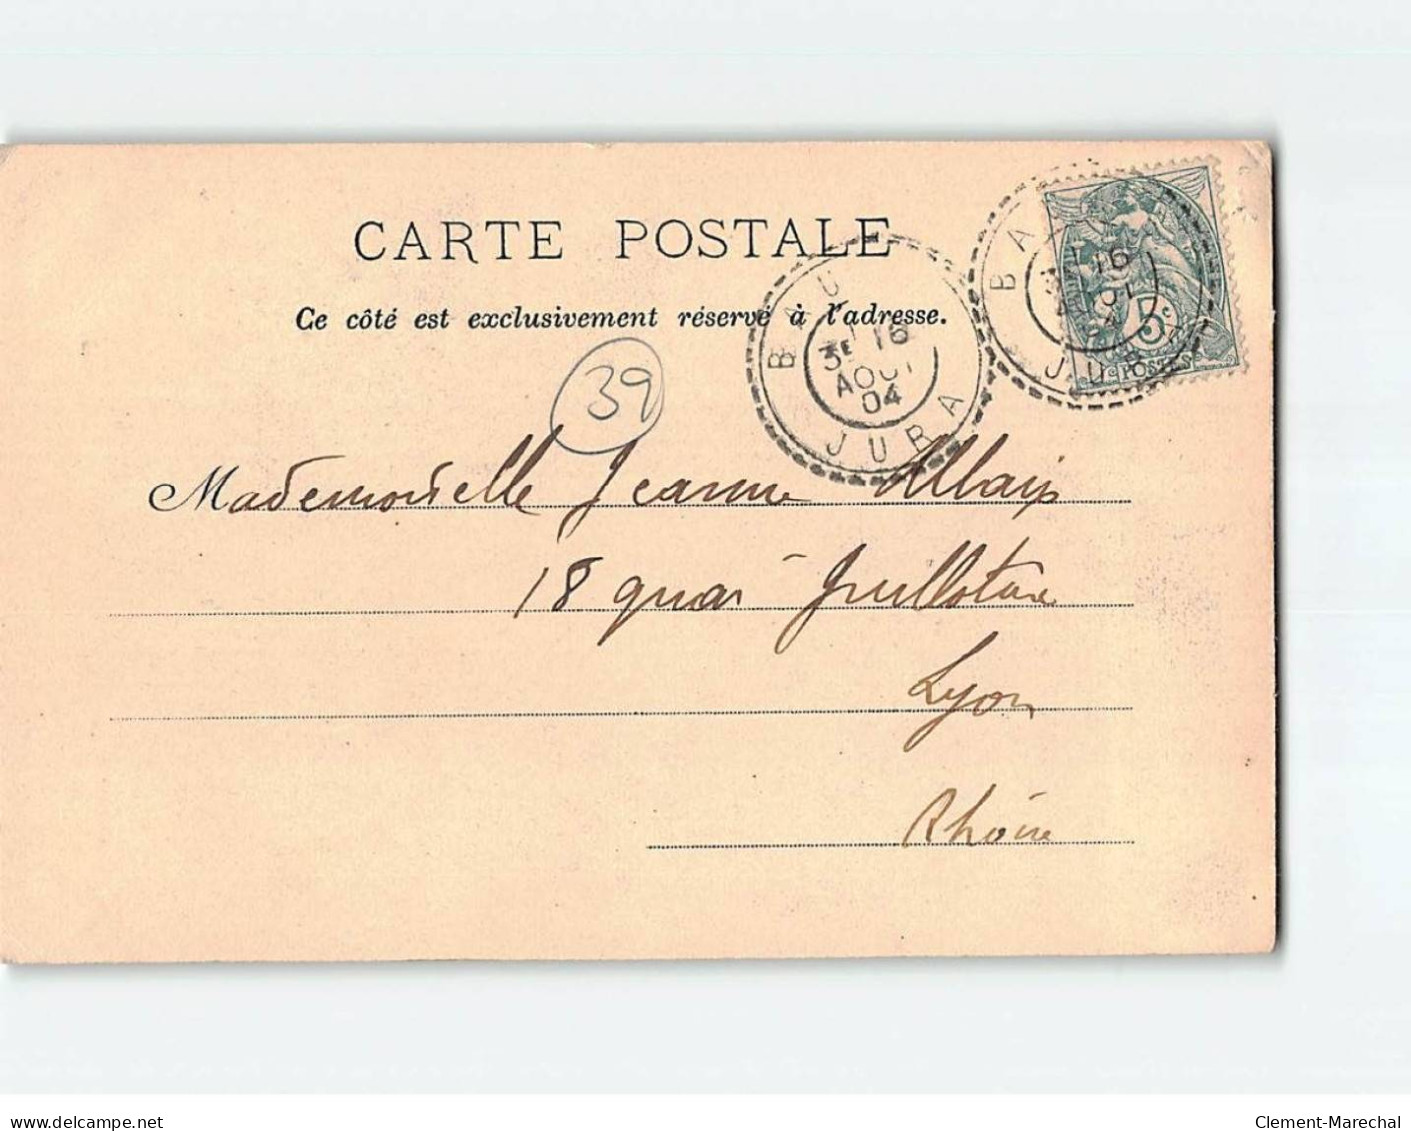 CARTE POSTALE
Ce côté est exclusivement réservé à l'adresse.
BAU
3E 16
AOUT
04
JURA
BA
16
JURA
5c
POSTES
39
Mademoiselle Jeanne Allaix
18 quai Guillotière
Lyon
Rhône
www.delcampe.net
Clement-Marechal